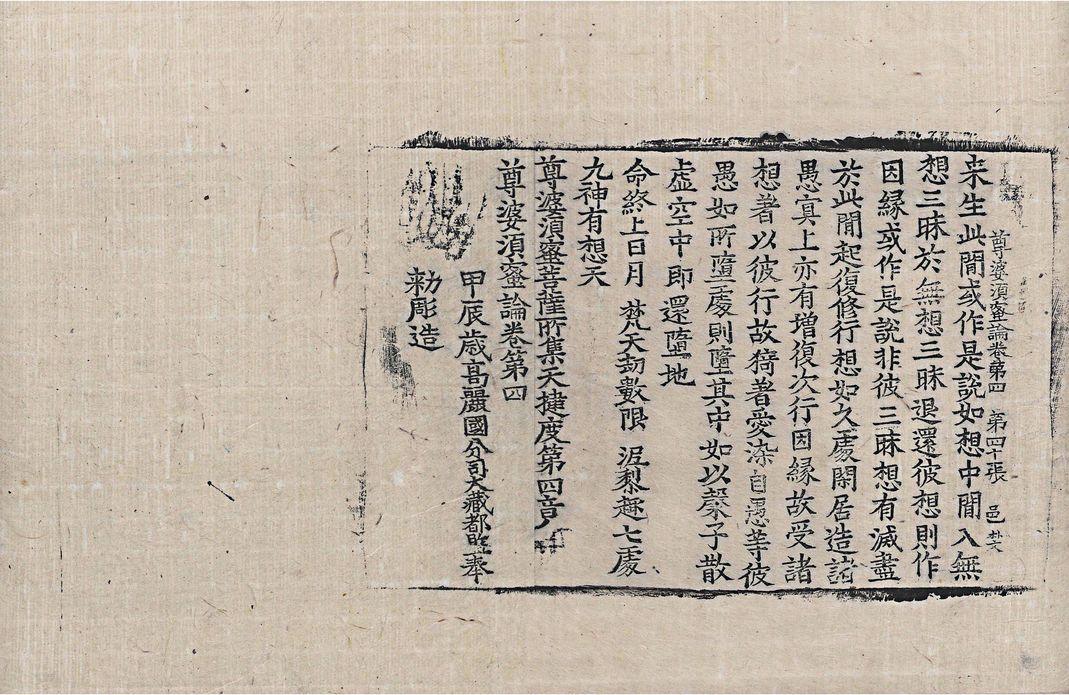 尊婆須蜜論卷第四 第四十張 邑
来生此間或作是說如想中間入無
想三昧於無想三昧退還彼想則作
因緣或作是說非彼三昧想有滅盡
於此間起復修行想如久處閑居造諸
愚冥上亦有增復次行因緣故受諸
想著以彼行故猗著愛染自愚等彼
愚如所墮處則墮其中如以縏子散
虛空中即還墮地
命終上日月 梵天劫數限 泥梨趣七處
九神有想天
尊婆須蜜菩薩所集天揵度第四音
尊婆須蜜論卷第四
甲辰歲高麗國分司大藏都監奉
勑彫造